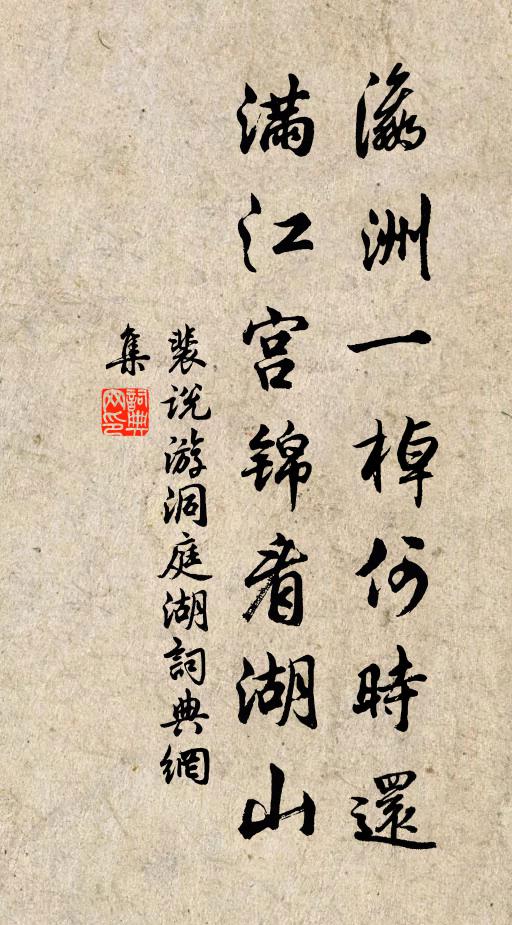 瀛洲一棹何時還
滿江宮錦看湖山
裴說游洞庭湖詞典網
集
詞典網印